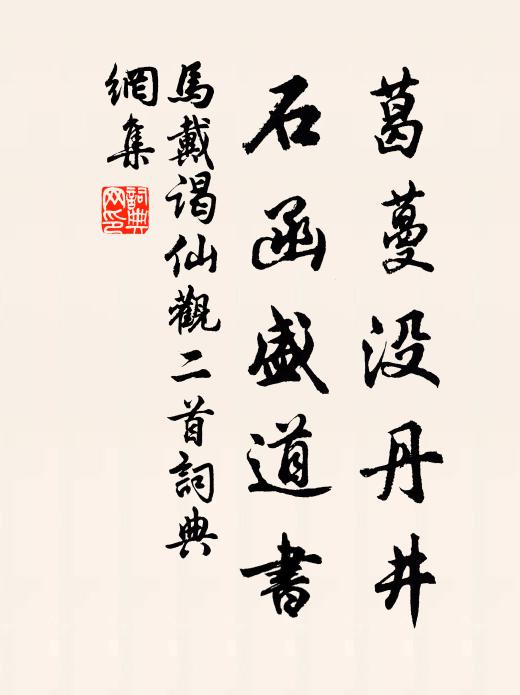 葛蔓没丹井
石函盛道書
馬戴謁仙觀二首詞典
網集
詞典网印